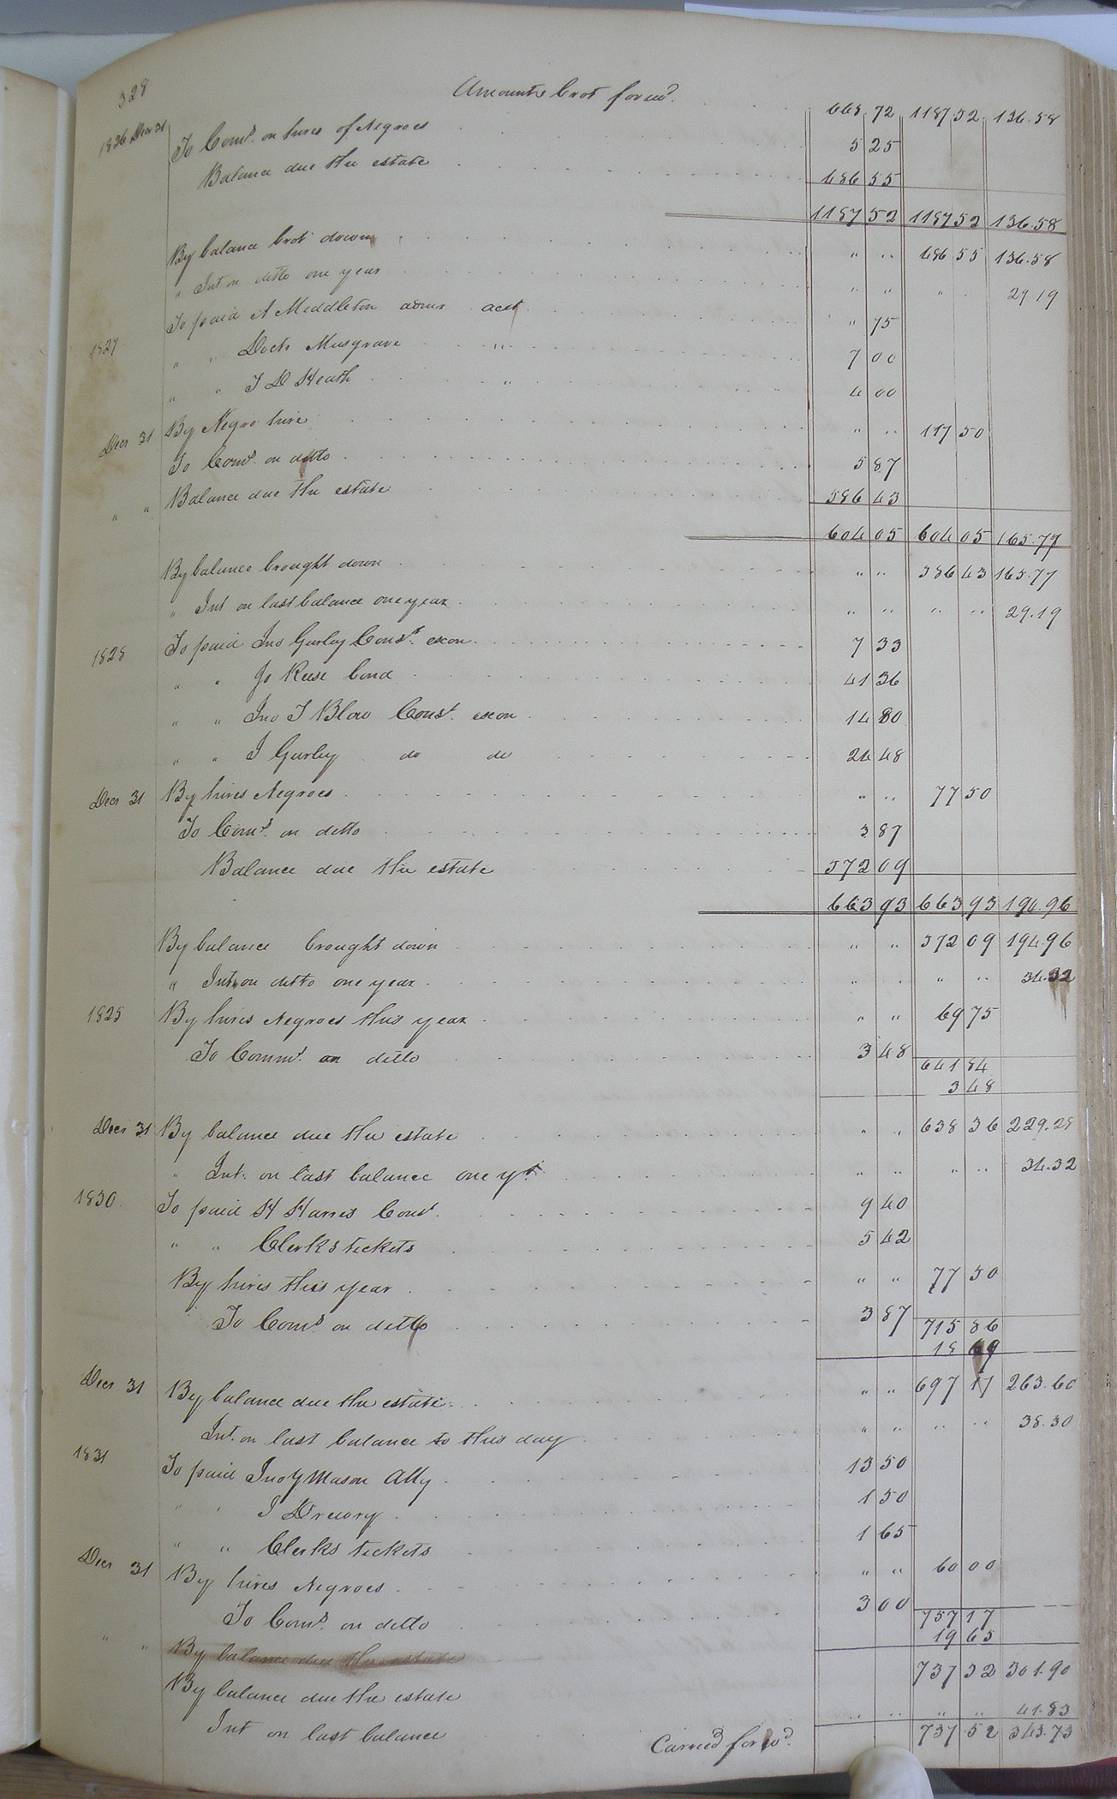 328 Amounts brot forwd. 665 72 1187 52 136.58
1826 Decr 31 To Coms. on hires of Negroes 5 25
Balance due the estate 486 55
1187 52 1187 52 136.58
By balance brot down " " 486 55 136.58
" Int on ditto one year " " " 29 19
1827 To paid A Middleton admr acct " 75
" " Doctr Musgrave " 7 00
" " J D Heath " 4 00
Decr 31 By Negro hire " " 117 50
To Coms. on ditto 5 87
" " Balance due the estate 586 43
604 05 604 05 165.77
By balance brought down " " 586 43 165.77
" Int on last balance one year " " " " 29.19
1828 To paid Jno Gurley Const. exon 7 33
" " Jo Reese bond 41 36
" " Jno J Blow Const. exon 14 80
" " J Gurley do do 24 48
Decr 31 By hires Negroes " " 77 50
To Coms. on ditto 3 87
Balance due the estate 572 09
663 93 663 93 194.96
By balance brought down " " 572 09 194 96
" Int on ditto one year " . " " 34.32
1829 By hires Negroes this year " " 69 75
To Comms. on ditto 3 48
641 84
3 48
Decr 31 By balance due the estate " " 638 36 229.28
" Int. on last balance one yr. " " " " 34.32
1830 To paid H Harris Const. 9 40
" " Clerks tickets 5 42
By hires this year " " 77 50
To Coms on ditto 3 87
715 86
18 69
Decr 31 By balance due the estate " " 697 17 263.60
Int. on last balance to this day " " " " 38.30
1831 To paid Jno Y Mason Atty 13 50
" " J Drewry 1 50
" " Clerks tickets 1 65
Decr 31 By hires Negroes " " 60 00
To Coms. on ditto 3 00
757 17
19 65
" " By balance due the estate
By balance due the estate 737 52 301.90
Int on last balance " " " " 41.83
Carried forwd. 737 52 343.73